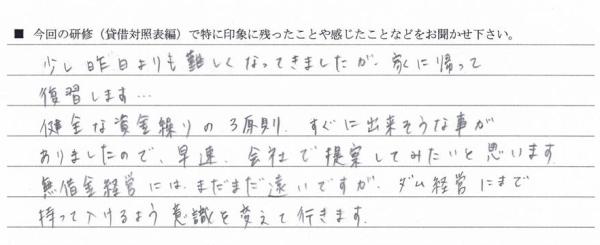 ■ 今回の研修（貸借対照表編）で特に印象に残ったことや感じたことなどをお聞かせ下さい。
少し昨日よりも難しくなってきましたが、家に帰って
復習します…
健全な資金繰りの3原則、すぐに出来そうな事が
ありましたので、早速、会社で提案してみたいと思います
無借金経営には、まだまだ遠いですが、ダム経営にまで
持って行けるよう意識を変えて行きます。